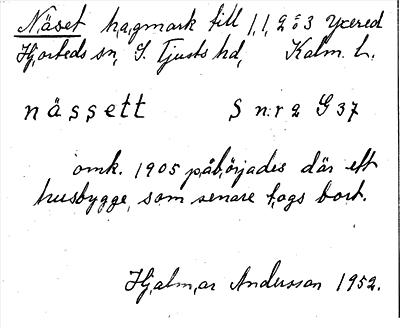 Näset hagmark till 1,1,2 o 3 Yxered
Hjorteds sn, S. Tjusts hd, Kalm. L.
nässett S nr 2 G 37
omk. 1905 påbörjades där ett
husbygge, som senare togs bort.
Hjalmar Andersson 1952.